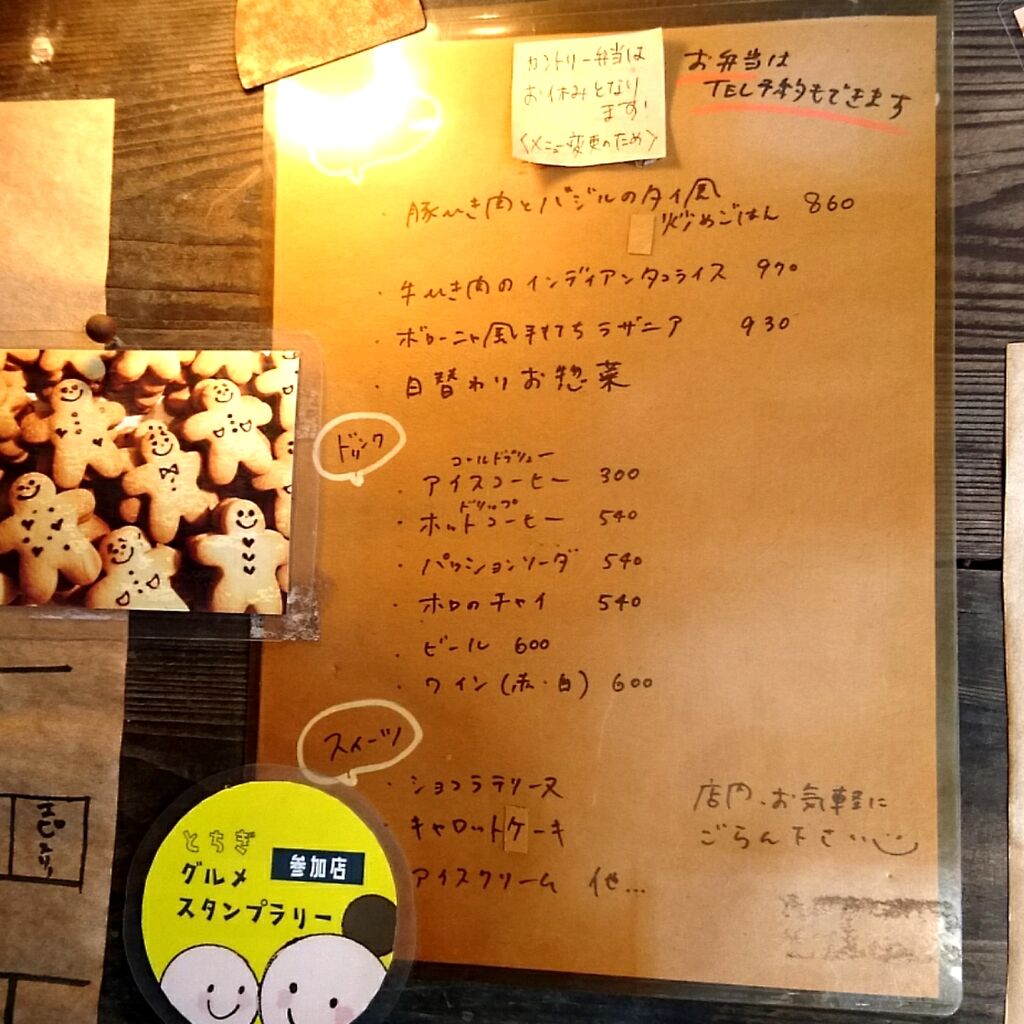 カントリー弁当は
お休みとなり
ます!
〈メニュー変更のため〉
お弁当は
TEL予約もできます
・豚ひき肉とバジルのタイ風
炒めごはん 860
・牛ひき肉のインディアンタコライス 970
・ボローニャ風手打ちラザニア 930
・日替わりお惣菜
ドリンク
コールドブリュー
・アイスコーヒー 300
ドリップ
・ホットコーヒー 540
・パッションソーダ 540
・ホロのチャイ 540
・ビール 600
・ワイン(赤・白) 600
スイーツ
・ショコラテリーヌ
・キャロットケーキ
アイスクリーム 他...
店内、お気軽に
ごらん下さい
とちぎ
グルメ
スタンプラリー
参加店